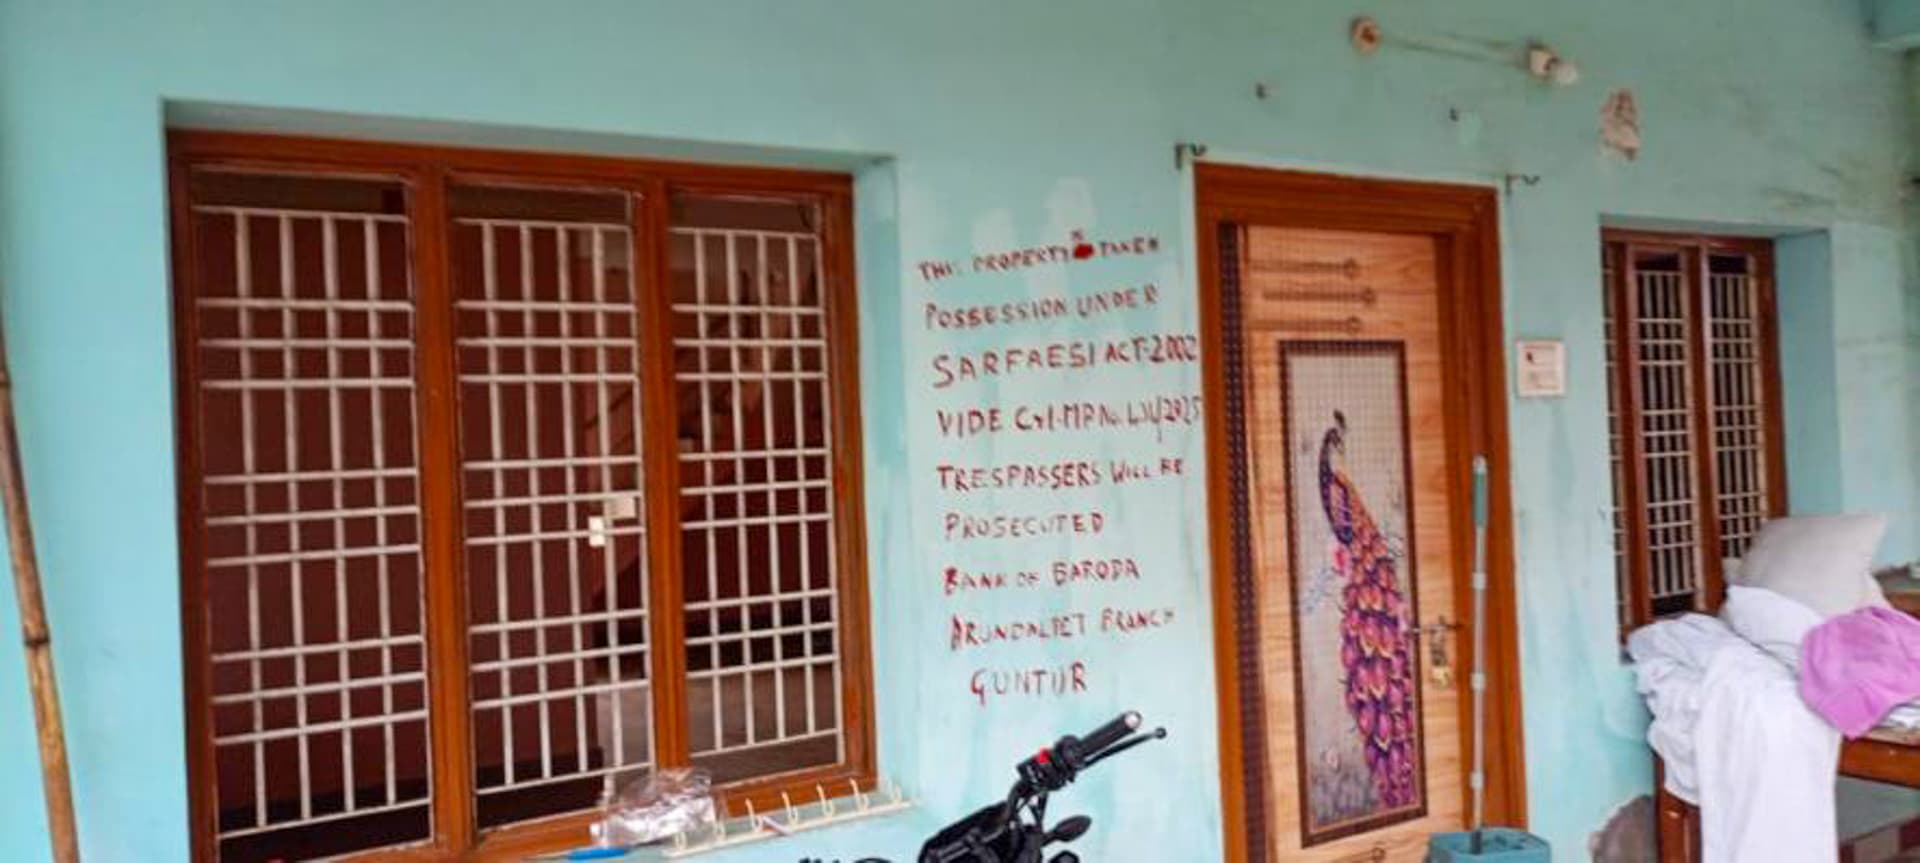 THIS PROPERTY IS TAKEN
POSSESSION UNDER
SARFAESI ACT-2002
VIDE Crl.MP No. /2025
TRESPASSERS WILL BE
PROSECUTED
BANK OF BARODA
ARUNDALPET BRANCH
GUNTUR